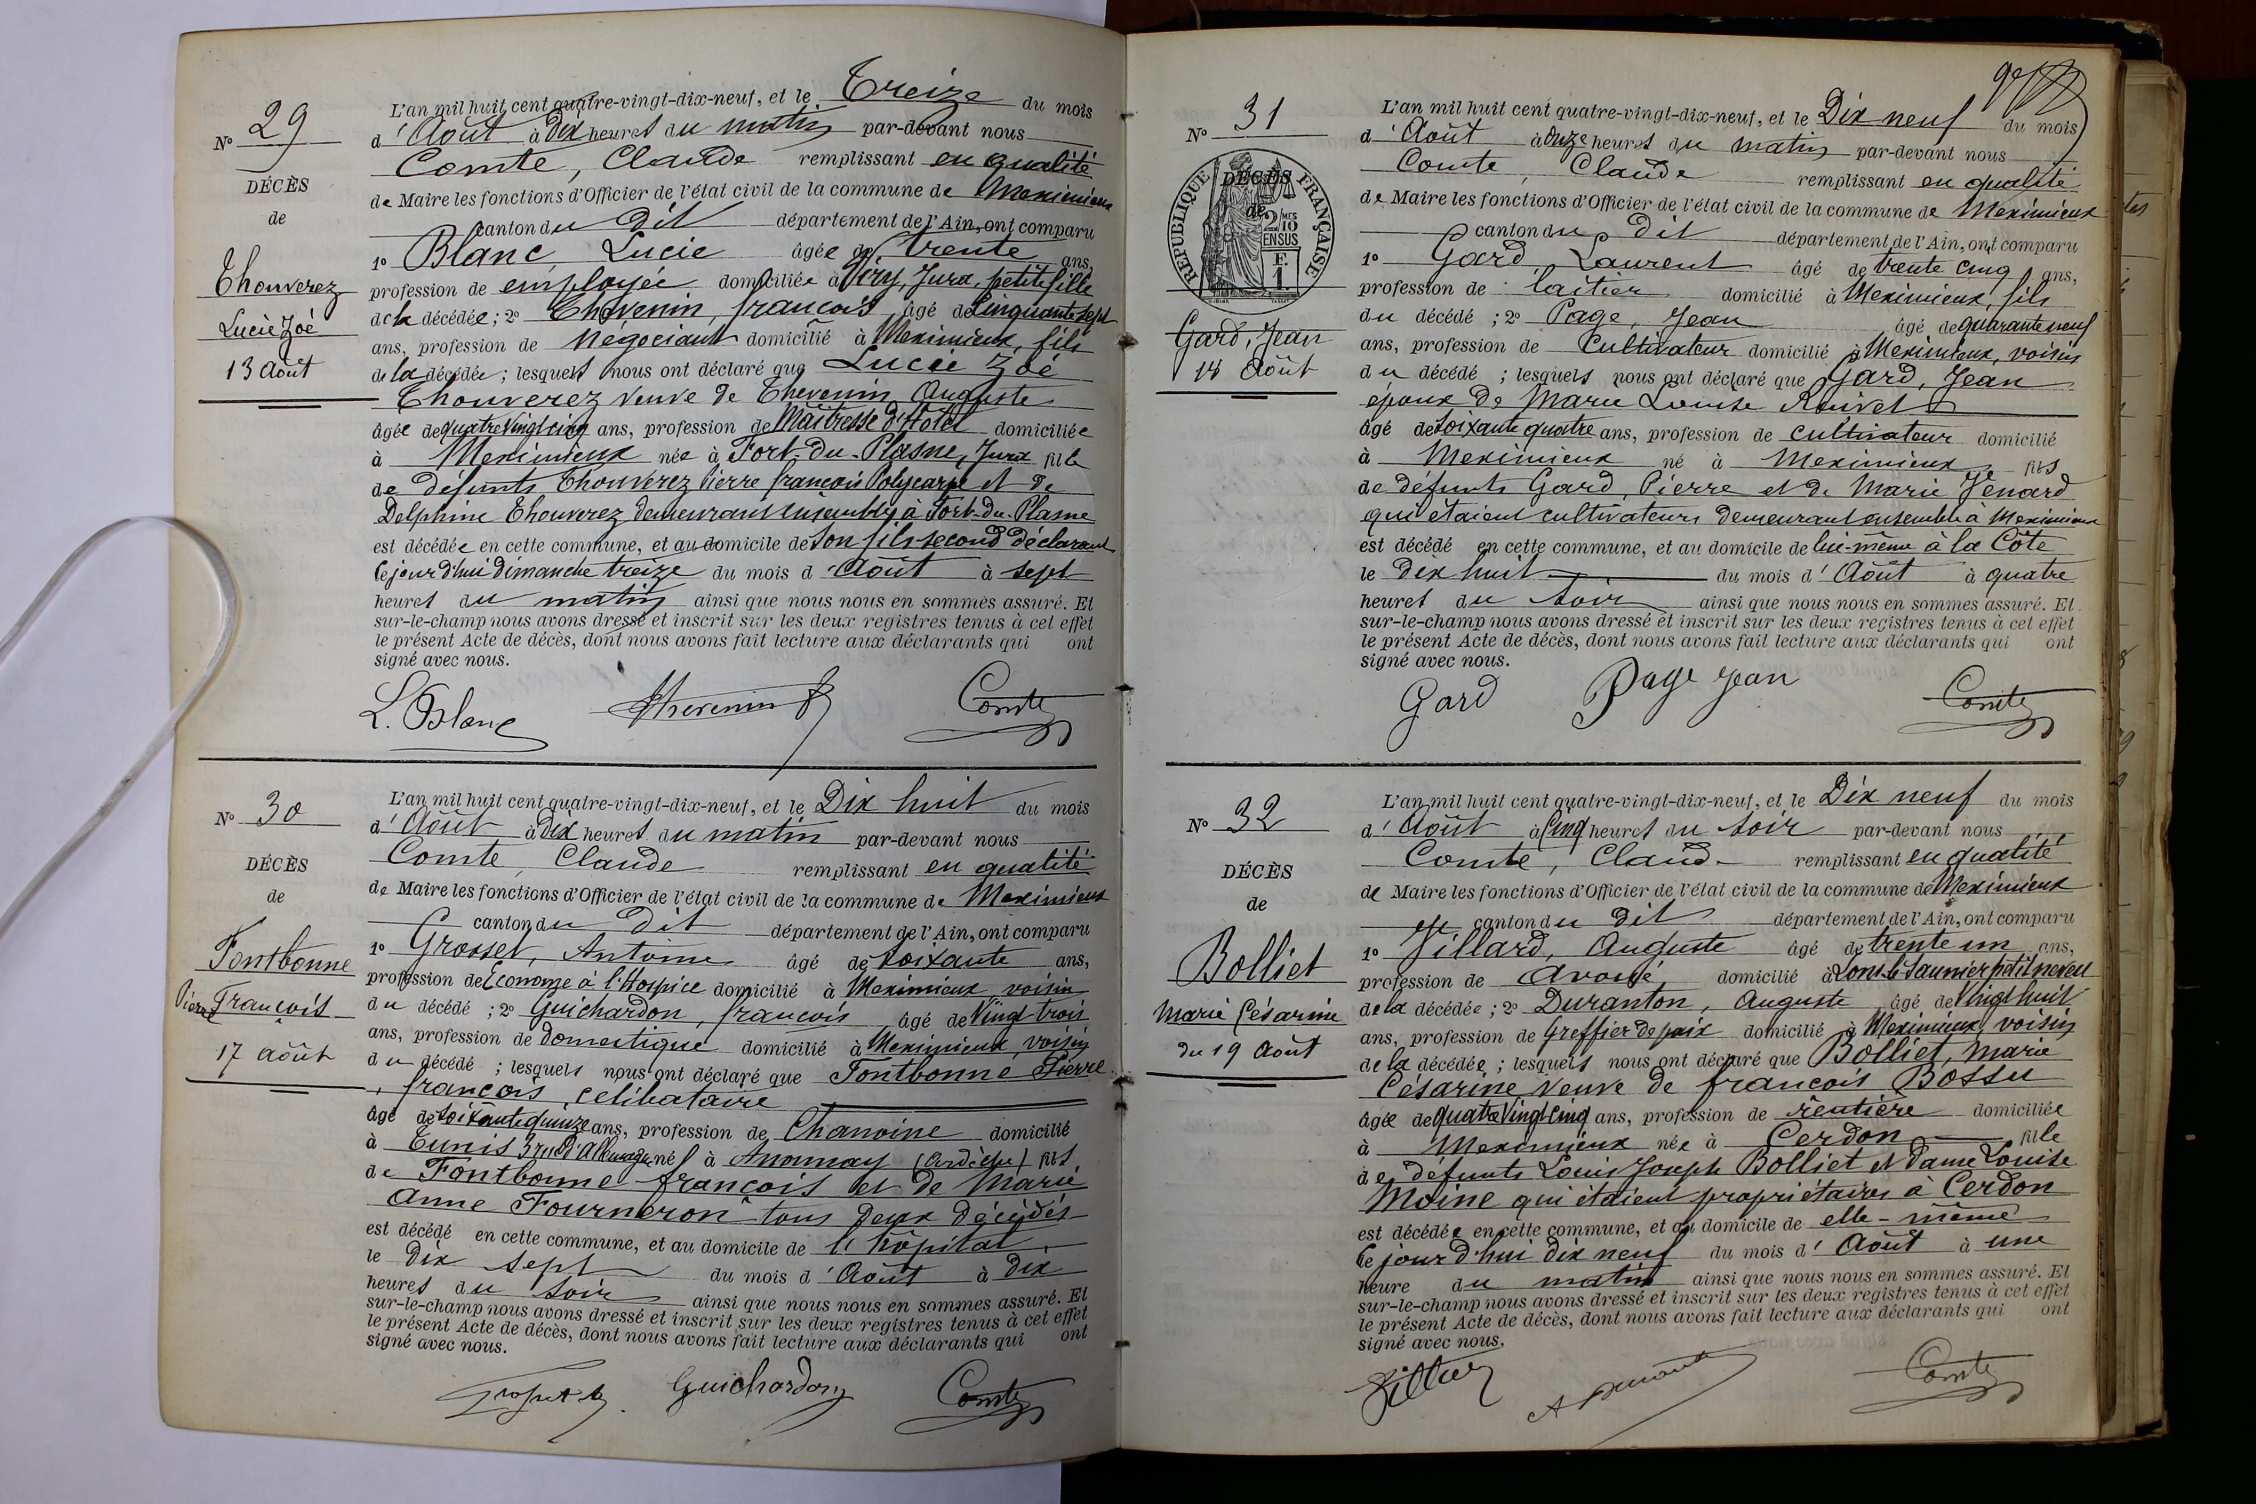 Nº 29
DÉCÈS
de
Thouverez
Lucie Zoé
13 Août
L'an mil huit cent quatre-vingt-dix-neuf, et le Treize du mois
d'Août à Dix heures du matin par-devant nous
Comte, Claude remplissant en qualité
de Maire les fonctions d'Officier de l'état civil de la commune de Meximieux
canton du dit département de l'Ain, ont comparu
1º Blanc, Lucie âgée de trente ans,
profession de employée domiciliée à Viry, Jura, petite fille
de la décédée ; 2º Thevenin, françois âgé de Cinquante sept
ans, profession de Négociant domicilié à Meximieux, fils
de la décédée ; lesquels nous ont déclaré que Lucie Zoé
Thouverez veuve de Thevenin Auguste
âgée de quatre vingt cinq ans, profession de Maîtresse d'Hotel domiciliée
à Meximieux née à Fort-du-Plasne, Jura fille
de défunts Thouverez Pierre françois Polycarpe et de
Delphine Thouverez demeurant ensembles à Fort-du-Plasne
est décédée en cette commune, et au domicile de son fils second déclarant
le jourd'hui dimanche treize du mois d'Août à sept
heures du matin ainsi que nous nous en sommes assuré. Et
sur-le-champ nous avons dressé et inscrit sur les deux registres tenus à cet effet
le présent Acte de décès, dont nous avons fait lecture aux déclarants qui ont
signé avec nous.
L. Blanc Thevenin F Comte
Nº 30
DÉCÈS
de
Fontbonne
Pierre François
17 Août
L'an mil huit cent quatre-vingt-dix-neuf, et le Dix huit du mois
d'Août à Dix heures du matin par-devant nous
Comte, Claude remplissant en qualité
de Maire les fonctions d'Officier de l'état civil de la commune de Meximieux
canton du dit département de l'Ain, ont comparu
1º Grosset, Antoine âgé de soixante ans,
profession de Econome à l'Hospice domicilié à Meximieux voisin
du décédé ; 2º Guichardon, françois âgé de Vingt trois
ans, profession de domestique domicilié à Meximieux, voisin
du décédé ; lesquels nous ont déclaré que Fontbonne Pierre
françois, célibataire
âgé de soixante quinze ans, profession de Chanoine domicilié
à Tunis 3 rue d'Allemagne né à Anonnay (Ardèche) fils
de Fontbonne françois et de Marie
Anne Fourneron tous deux décédés
est décédé en cette commune, et au domicile de l'hôpital
le Dix sept du mois d'Août à dix
heures du soir ainsi que nous nous en sommes assuré. Et
sur-le-champ nous avons dressé et inscrit sur les deux registres tenus à cet effet
le présent Acte de décès, dont nous avons fait lecture aux déclarants qui ont
signé avec nous.
Guichardon Comte
Nº 31
RÉPUBLIQUE FRANÇAISE
DÉCÈS
de
2/10 MES
EN SUS
F.
1.
Gard, Jean
18 Août
L'an mil huit cent quatre-vingt-dix-neuf, et le Dix neuf du mois
d'Août à onze heures du matin par-devant nous
Comte, Claude remplissant en qualité
de Maire les fonctions d'Officier de l'état civil de la commune de Meximieux
canton du dit département de l'Ain, ont comparu
1º Gard, Laurent âgé de trente cinq ans,
profession de laitier domicilié à Meximieux, fils
du décédé ; 2º Page, Jean âgé de quarante neuf
ans, profession de Cultivateur domicilié à Meximieux, voisin
du décédé ; lesquels nous ont déclaré que Gard, Jean
époux de Marie Louise Rouvet
âgé de soixante quatre ans, profession de cultivateur domicilié
à Meximieux né à Meximieux fils
de défunts Gard, Pierre et de Marie Jénard
qui étaient cultivateurs demeurant ensemble à Meximieux
est décédé en cette commune, et au domicile de lui-même à la Côte
le Dix huit du mois d'Août à quatre
heures du soir ainsi que nous nous en sommes assuré. Et
sur-le-champ nous avons dressé et inscrit sur les deux registres tenus à cet effet
le présent Acte de décès, dont nous avons fait lecture aux déclarants qui ont
signé avec nous.
Gard Page Jean Comte
Nº 32
DÉCÈS
de
Bolliet
Marie Césarine
du 19 Août
L'an mil huit cent quatre-vingt-dix-neuf, et le Dix neuf du mois
d'Août à Cinq heures du soir par-devant nous
Comte, Claude remplissant en qualité
de Maire les fonctions d'Officier de l'état civil de la commune de Meximieux
canton du dit département de l'Ain, ont comparu
1º Jillard, Auguste âgé de trente un ans,
profession de avoué domicilié à Lons le Saunier petit neveu
de la décédée ; 2º Duranton, Auguste âgé de Vingt huit
ans, profession de Greffier de paix domicilié à Meximieux, voisin
de la décédée ; lesquels nous ont déclaré que Bolliet, Marie
Césarine veuve de françois Bossu
âgée de quatre Vingt Cinq ans, profession de rentière domiciliée
à Meximieux née à Cerdon fille
de défunts Louis Joseph Bolliet et dame Louise
Moine qui étaient propriétaires à Cerdon
est décédée en cette commune, et au domicile de elle-même
le jourd'hui dix neuf du mois d'Août à une
heure du matin ainsi que nous nous en sommes assuré. Et
sur-le-champ nous avons dressé et inscrit sur les deux registres tenus à cet effet
le présent Acte de décès, dont nous avons fait lecture aux déclarants qui ont
signé avec nous.
Comte